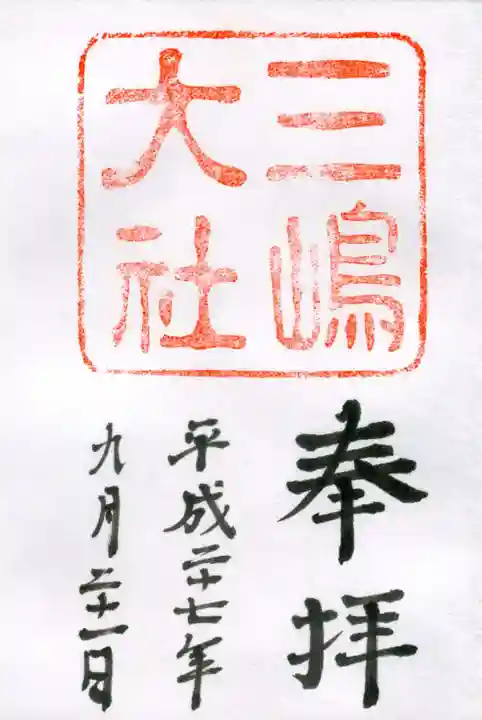 三嶋
大社
奉拝
平成二十七年
九月二十一日